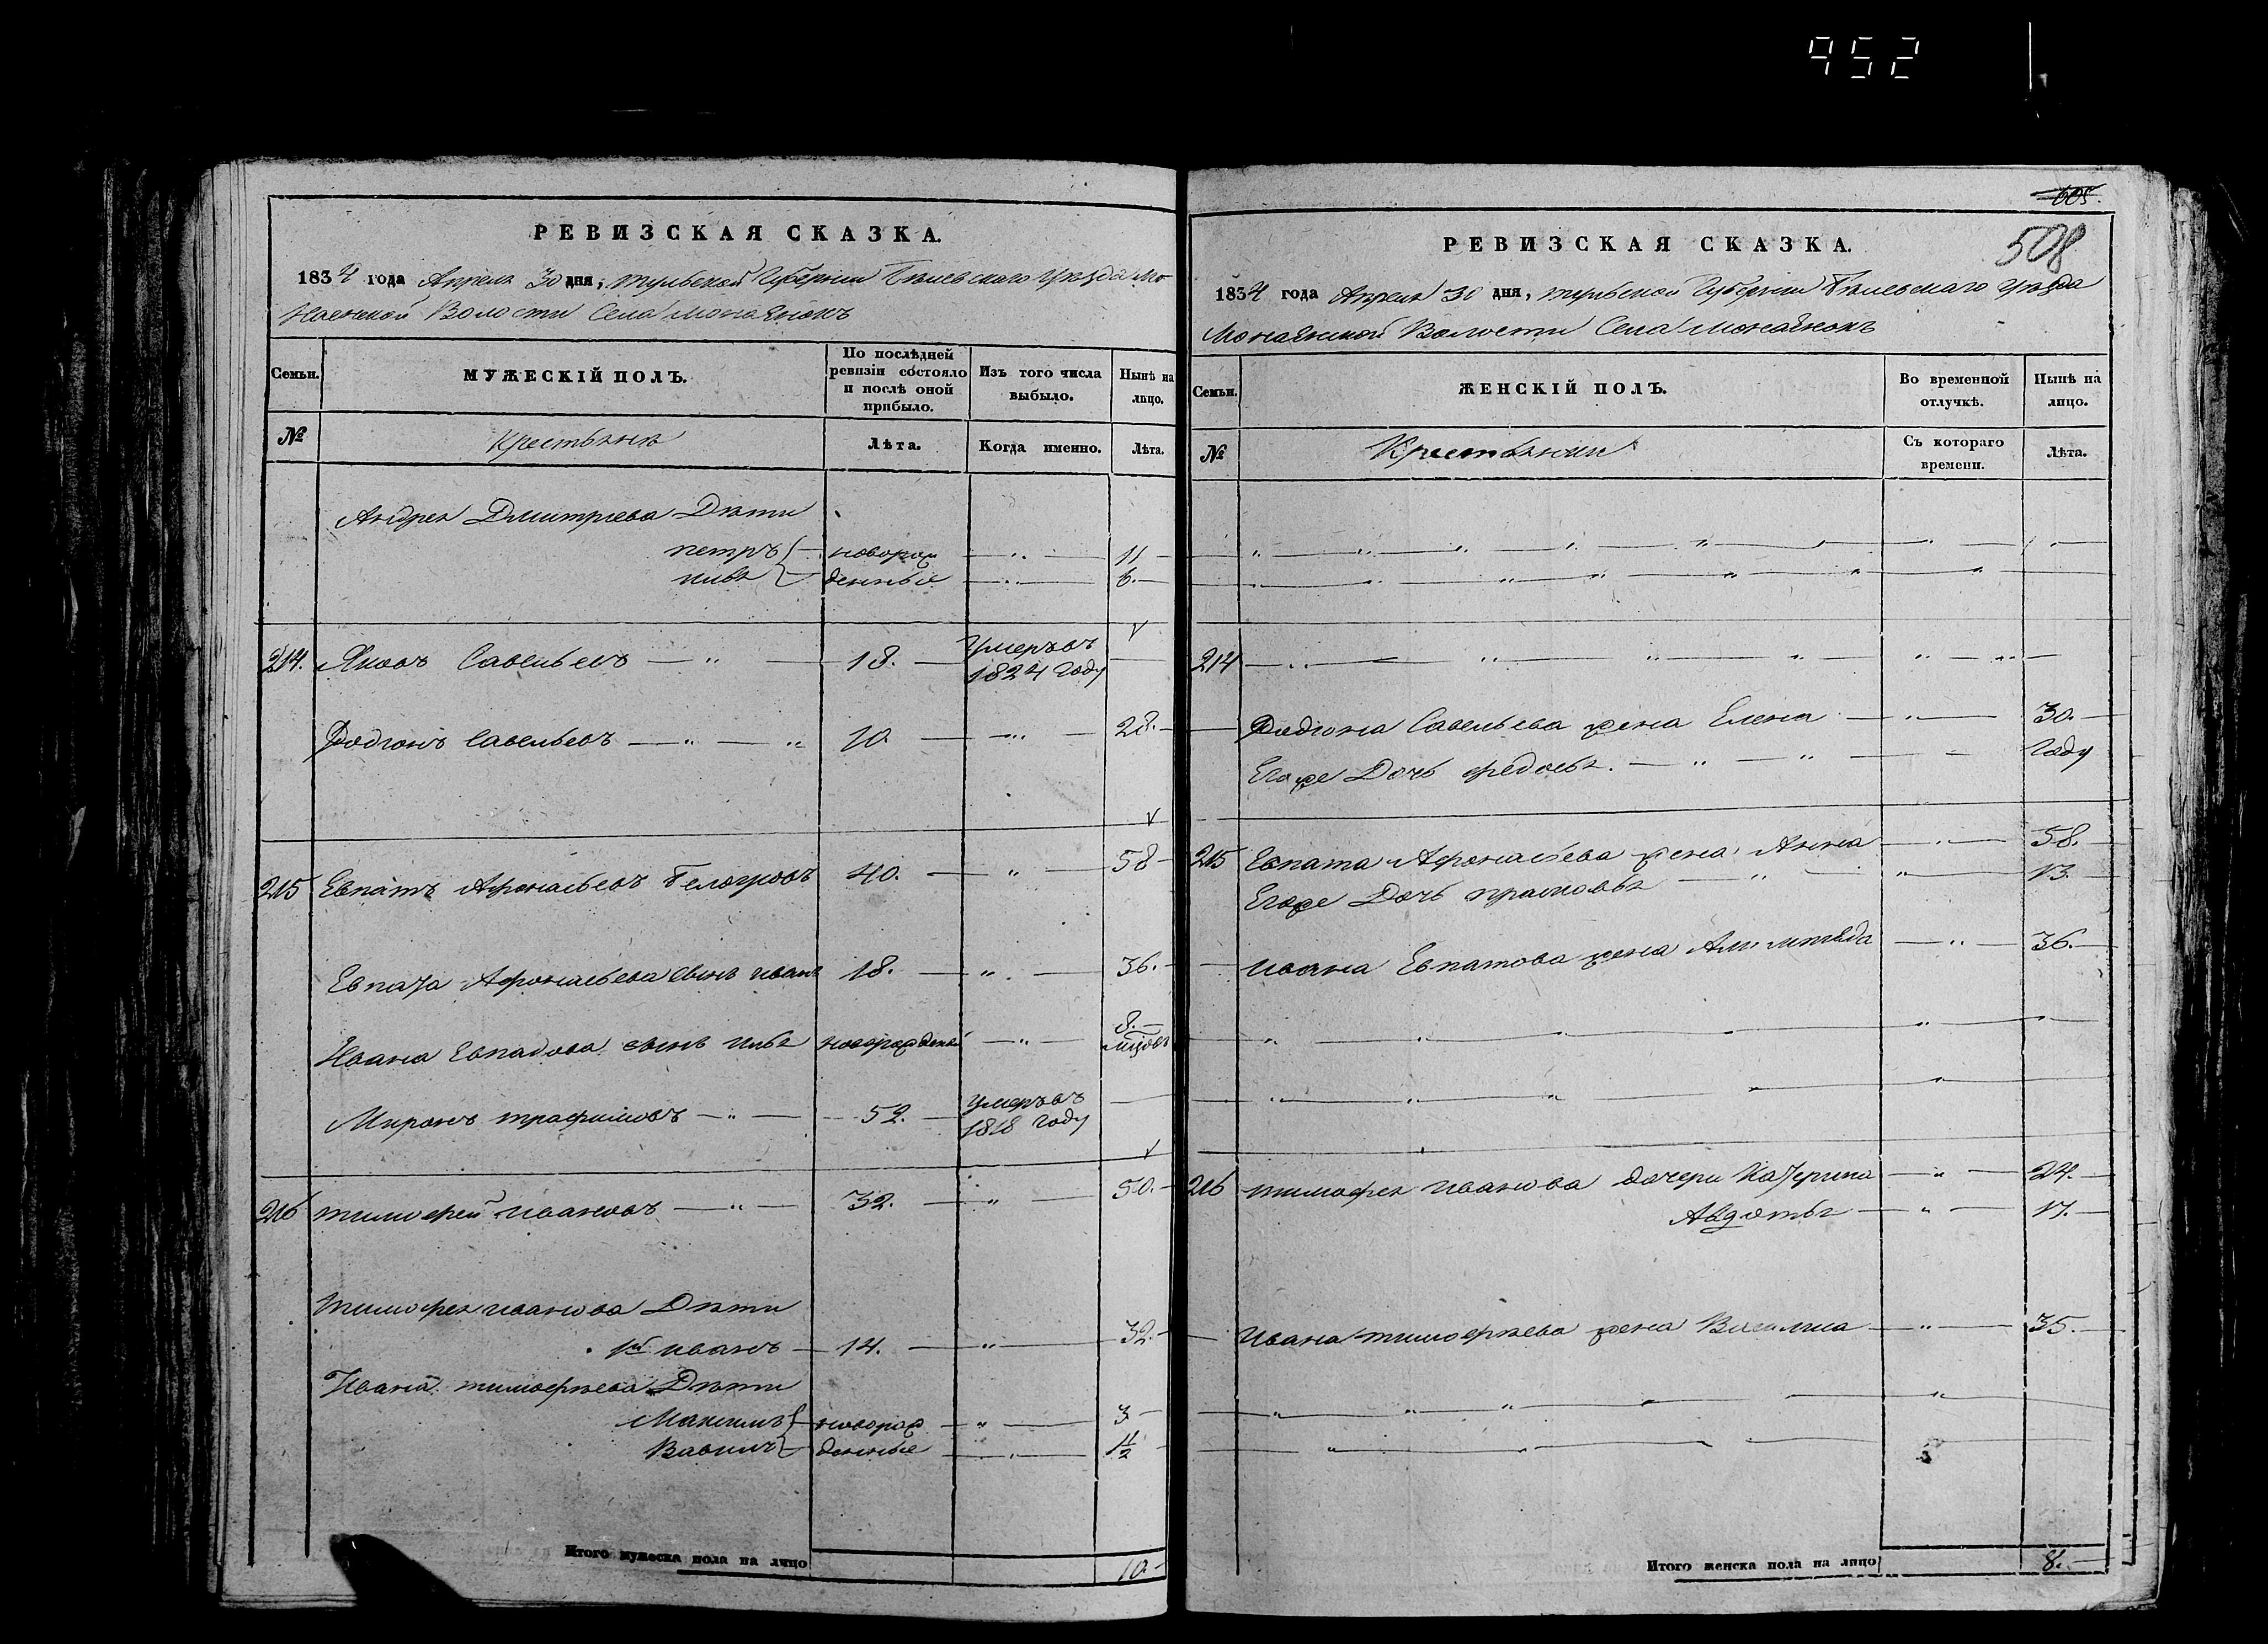 952
РЕВИЗСКАЯ СКАЗКА.
1834 года Апреля 30 дня, Тульской Губернии Белевскаго Уезда Мо
наенской Волости Села Монаенокъ
Семьи.
МУЖЕСКІЙ ПОЛЪ.
По послѣдней ревизіи состояло и послѣ оной прибыло.
Изъ того числа выбыло.
Нынѣ на лицо.
№
Крестьяне
Лѣта.
Когда именно.
Лѣта.
Андрея Дмитриева Дети
петръ новорож 11
илья денные 6.
214. Яковъ Савельевъ 18. Умеръ въ 1824 году
Родионъ Савельевъ 10. 28.
215 Евпатъ Афонасьевъ Белоусовъ 40. 58
Евпата Афонасьева сынъ иванъ 18. 36.
Ивана Евпатова сынъ илья новорожденный 8. мцовъ
Миронъ трафимовъ 52. умеръ въ 1818 году
216 тимофей ивановъ 32. 50.
тимофея иванова Дети
1й иванъ 14. 32.
Ивана тимофеева Дети
Максимъ новорож 3
Вавилъ денные 1 1/2
Итого мужеска пола на лицо 10
605.
508
РЕВИЗСКАЯ СКАЗКА.
1834 года Апреля 30 дня, тульской Губернии Белевскаго Уезда
Монаенской Волости Села Монаенокъ
Семьи.
ЖЕНСКІЙ ПОЛЪ.
Во временной отлучкѣ.
Нынѣ на лицо.
№
Крестьянки
Съ котораго времени.
Лѣта.
214
Родиона Савельева жена Елена 30.
Егоже Дочь федосья. Году
215 Евпата Афонасьева жена Анна 58.
Егоже Дочь прасковья 13.
ивана Евпатова жена 36.
216 тимофея иванова дочери Катерина 24.
Авдотья 17.
ивана тимофеева жена Василиса 35.
Итого женска пола на лицо 8.